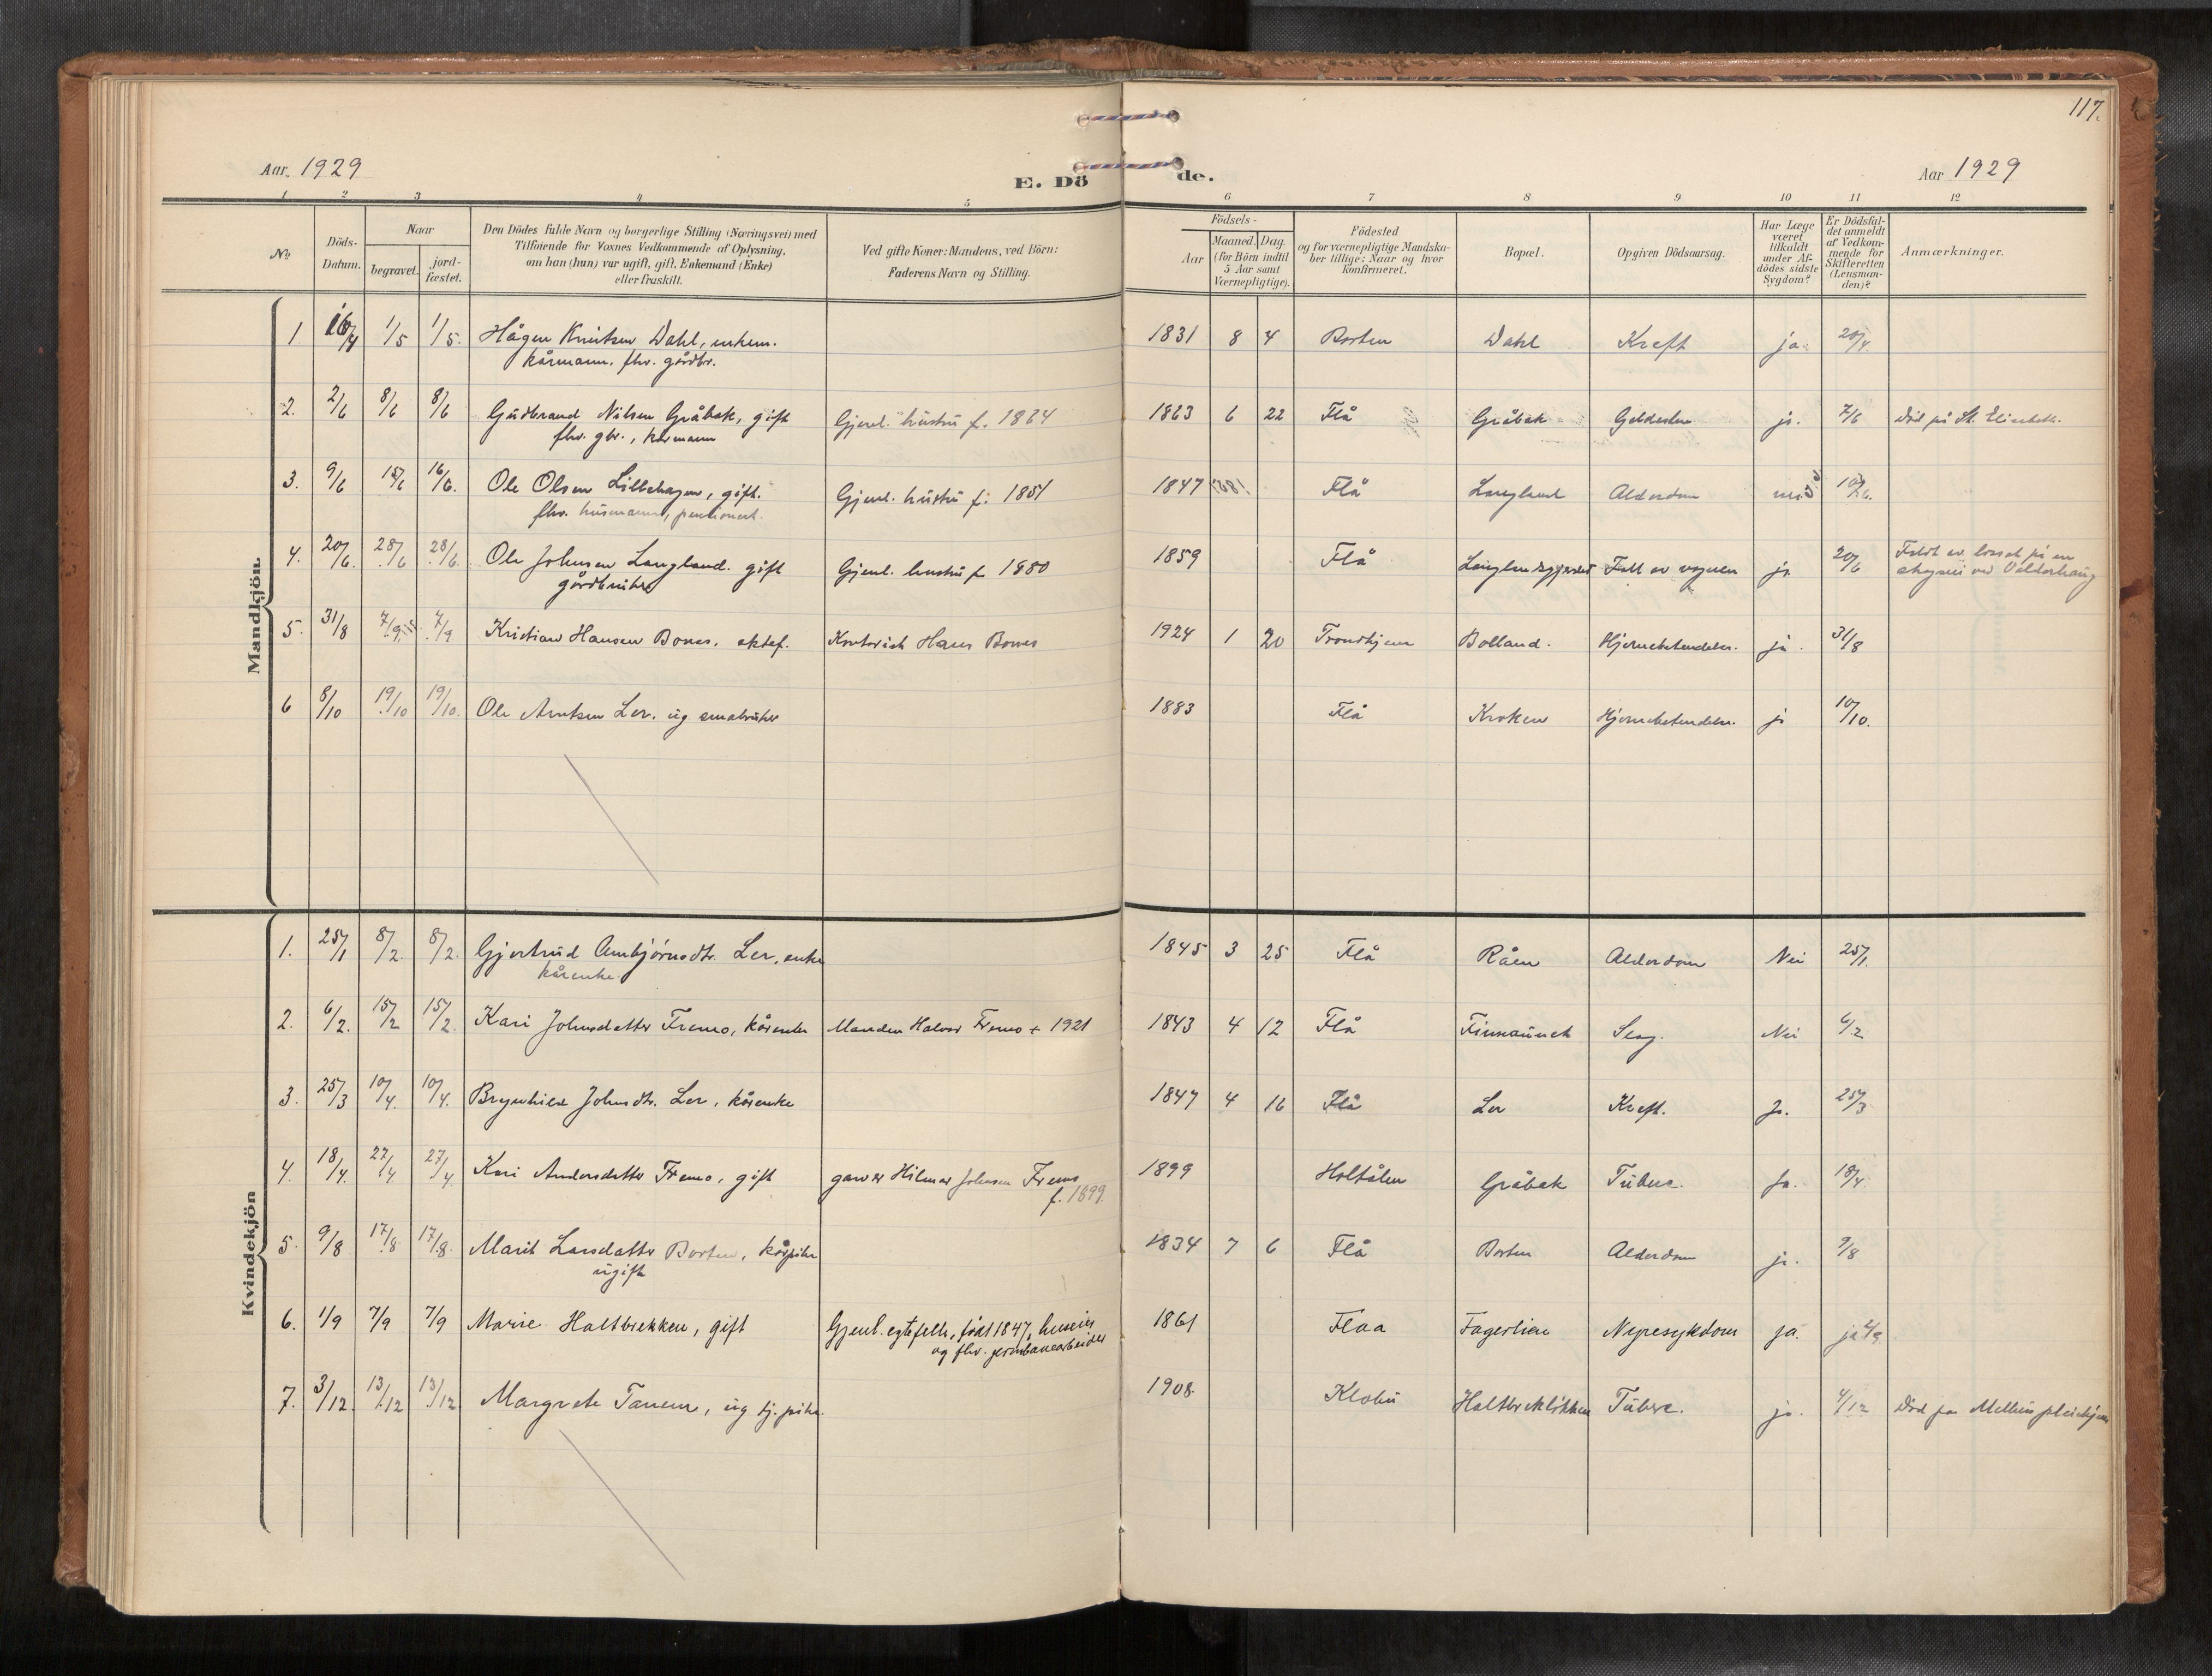 117.
Aar 1929
E. Dö de.
Aar 1929
1 2 3 4 5 6 7 8 9 10 11 12
No.
Döds-Datum.
Naar
begravet. jordfæstet.
Den Dödes fulde Navn og borgerlige Stilling (Næringsvei) med
Tilföiende for Voxnes Vedkommende af Oplysning,
om han (hun) var ugift, gift, Enkemand (Enke)
eller fraskilt.
Ved gifte Koner: Mandens, ved Börn:
Faderens Navn og Stilling.
Födsels-
Aar Maaned. Dag.
(for Börn indtil
5 Aar samt
Værnepligtige).
Födested
og for værnepligtige Mandskaber tillige: Naar og hvor
konfirmeret.
Bopæl.
Opgiven Dödsaarsag.
Har Læge
været
tilkaldt
under Afdödes sidste
Sygdom?
Er Dödsfaldet anmeldt
af Vedkommende for
Skifteretten
(Lensmanden)?
Anmærkninger.
Mandkjön.
1 16/4 1/5 1/5. Hågen Knutsen Dahl, enkem. 1831 8 4 Borten Dahl Kreft ja. 20/4.
kårmann, fhv. gårdbr.
2. 2/6 8/6 8/6 Gudbrand Nilsen Gråbak, gift Gjenl. hustru f. 1864 1863 6 22 Flå Gråbak ja. 7/6 Död på St. Elisabeth.
fhv. gbr., kårmann
3. 9/6 15/6 16/6. Ole Olsen Lillehagen, gift. Gjenl. hustru f. 1851 1847 Flå Langland Alderdom 10/6.
fhv. husmann, pensionert.
4. 20/6. 28/6 28/6. Ole Johnsen Langland. gift Gjenl. hustru f. 1880 1859 Flå Fall av vognen ja 20/6
gårdbruker
5. 31/8 7/9 7/9 Kristian Hansen Bones. ektef. Kontorist Hans Bones 1924 1 20 Trondhjem Bolland. Hjernebetendelse. ja. 31/8
6 8/10 19/10 19/10. Ole Arntsen Ler. ug småbruker 1883 Flå Kroken Hjernebetendelse. ja 10/10.
Kvindekjön
1. 25/1 8/2. 8/2. Gjertrud Arnbjørnsdtr. Ler, enke 1845 3 25 Flå Råen Alderdom Nei 25/1.
kårenke.
2. 6/2. 15/2 15/2. Kari Johnsdatter Fremo, kårenke Manden Halvor Fremo + 1921 1843 4 12 Flå Slag. Nei 6/2
3. 25/3 10/4. 10/4. Brynhild Johnsdtr. Ler, kårenke 1847 4 16 Flå Ler Kreft. Ja. 25/3
4. 18/4. 27/4 27/4 Kari Andersdatter Fremo, gift garver Hilmar Johnsen Fremo 1899 Holtålen Gråbak Tuberc. Ja. 18/4.
f. 1899.
5. 9/8 17/8 17/8. Marit Larsdatter Borten, kårpike 1834 7 6 Flå Borten Alderdom ja. 9/8
ugift
6. 1/9 7/9 7/9 Marie Haltbrekken, gift Gjenl. egtefelle, född 1847, huseier 1861 Flaa Fagerlien Nyresykdom ja. ja 2/9
og fhv. jernbanearbeider
7. 3/12 13/12 13/12 Margrete Tanem, ug tj.pike. 1908. Klæbu Tuberc. ja. 4/12 Död på Melhus pleiehjem